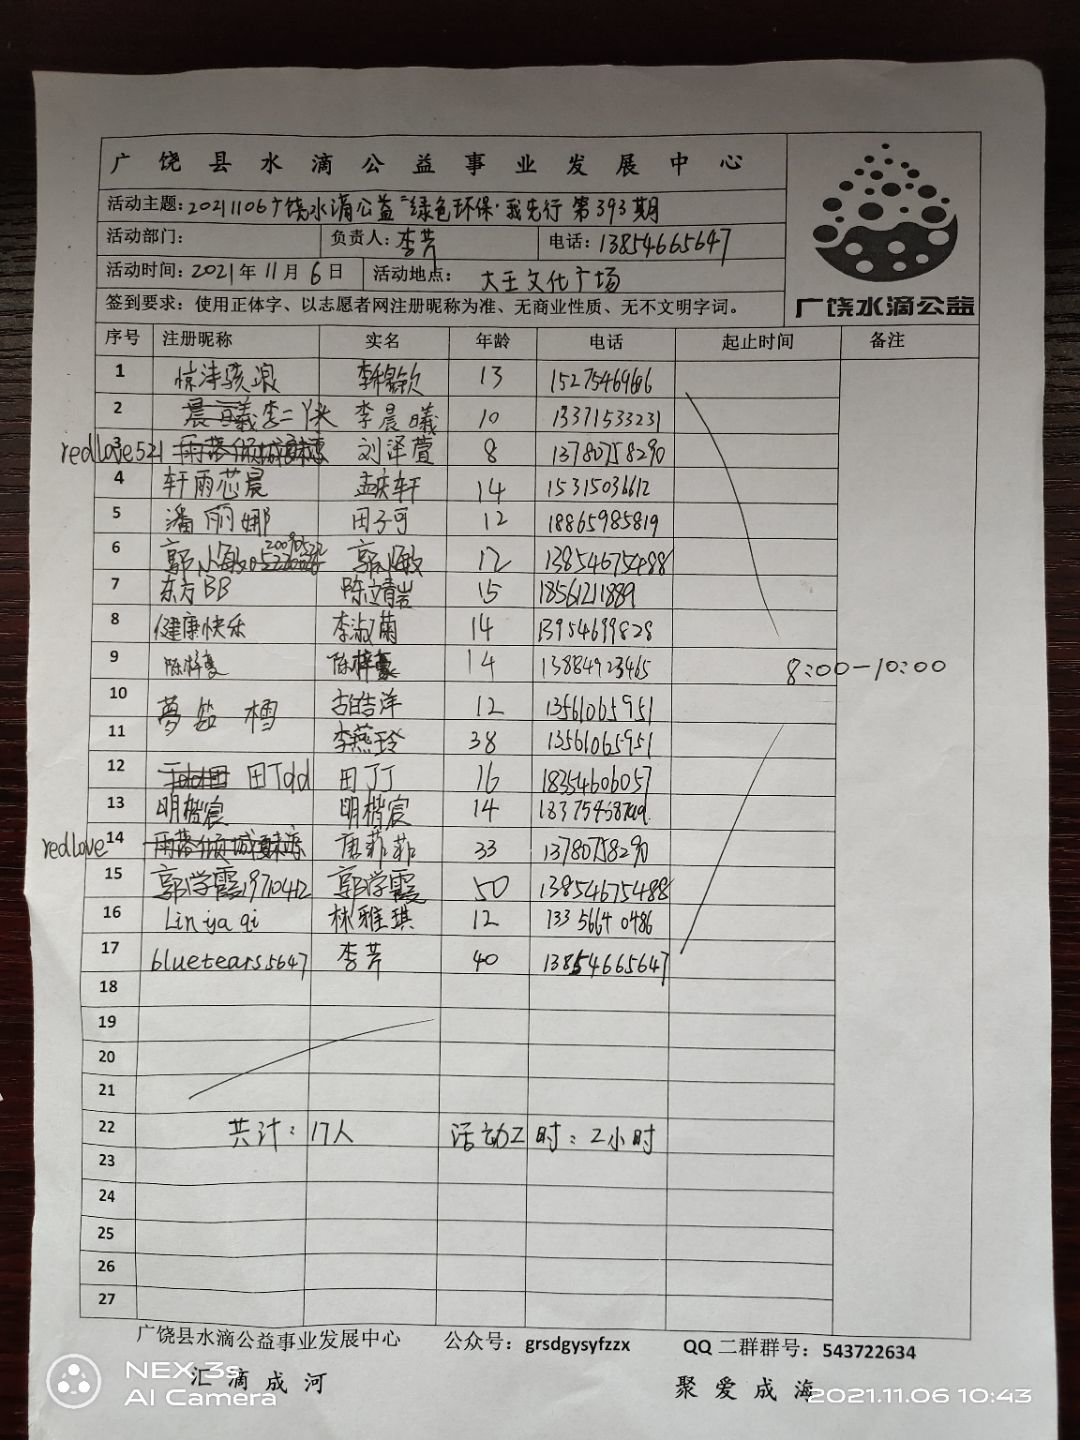 广饶县水滴公益事业发展中心
活动主题:20211106广饶水滴公益"绿色环保·我先行 第393期
活动部门: 负责人:李芹 电话:13854665647
活动时间:2021年11月6日 活动地点: 大王文化广场
签到要求:使用正体字、以志愿者网注册昵称为准、无商业性质、无不文明字词。
广饶水滴公益
序号 注册昵称 实名 年龄 电话 起止时间 备注
1 惊涛骇浪 13
2 李二丫米 李晨曦 10 13371533231
3 redlove521 刘泽萱 8 13780758290
4 轩雨芯晨 孟庆轩 14 15315036612
5 潘丽娜 田子可 12 18865985819
6 郭小敏 郭小敏 12 13854675488
7 东方BB 陈立青岩 15 18561211889
8 健康快乐 李淑菊 14 13954699828
9 陈梓豪 陈梓豪 14 13884923465
8:00-10:00
10 12 13561065951
11 李燕玲 38 13561065951
12 田Tdd 田丁丁 16 18354606057
13 明楷宸 明楷宸 14
14 redlove 唐菲菲 33 13780758290
15 郭学霞19710412 郭学霞 50 13854675488
16 Lin ya qi 林雅琪 12 133 5664 0486
17 bluetears5647 李芹 40 13854665647
18
19
20
21
22 共计:17人 活动工时:2小时
23
24
25
26
27
广饶县水滴公益事业发展中心 公众号:grsdgysyfzzx QQ二群群号:543722634
汇滴成河 聚爱成海
NEX 3s
AI Camera
2021.11.06 10:43